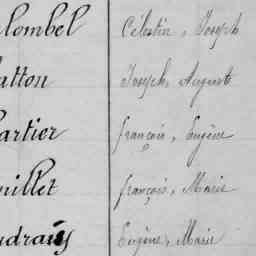 lombel Célestin, Joseph
atton Joseph, August
artier François, Eugène
uillet François, Marie
Eugène, Marie